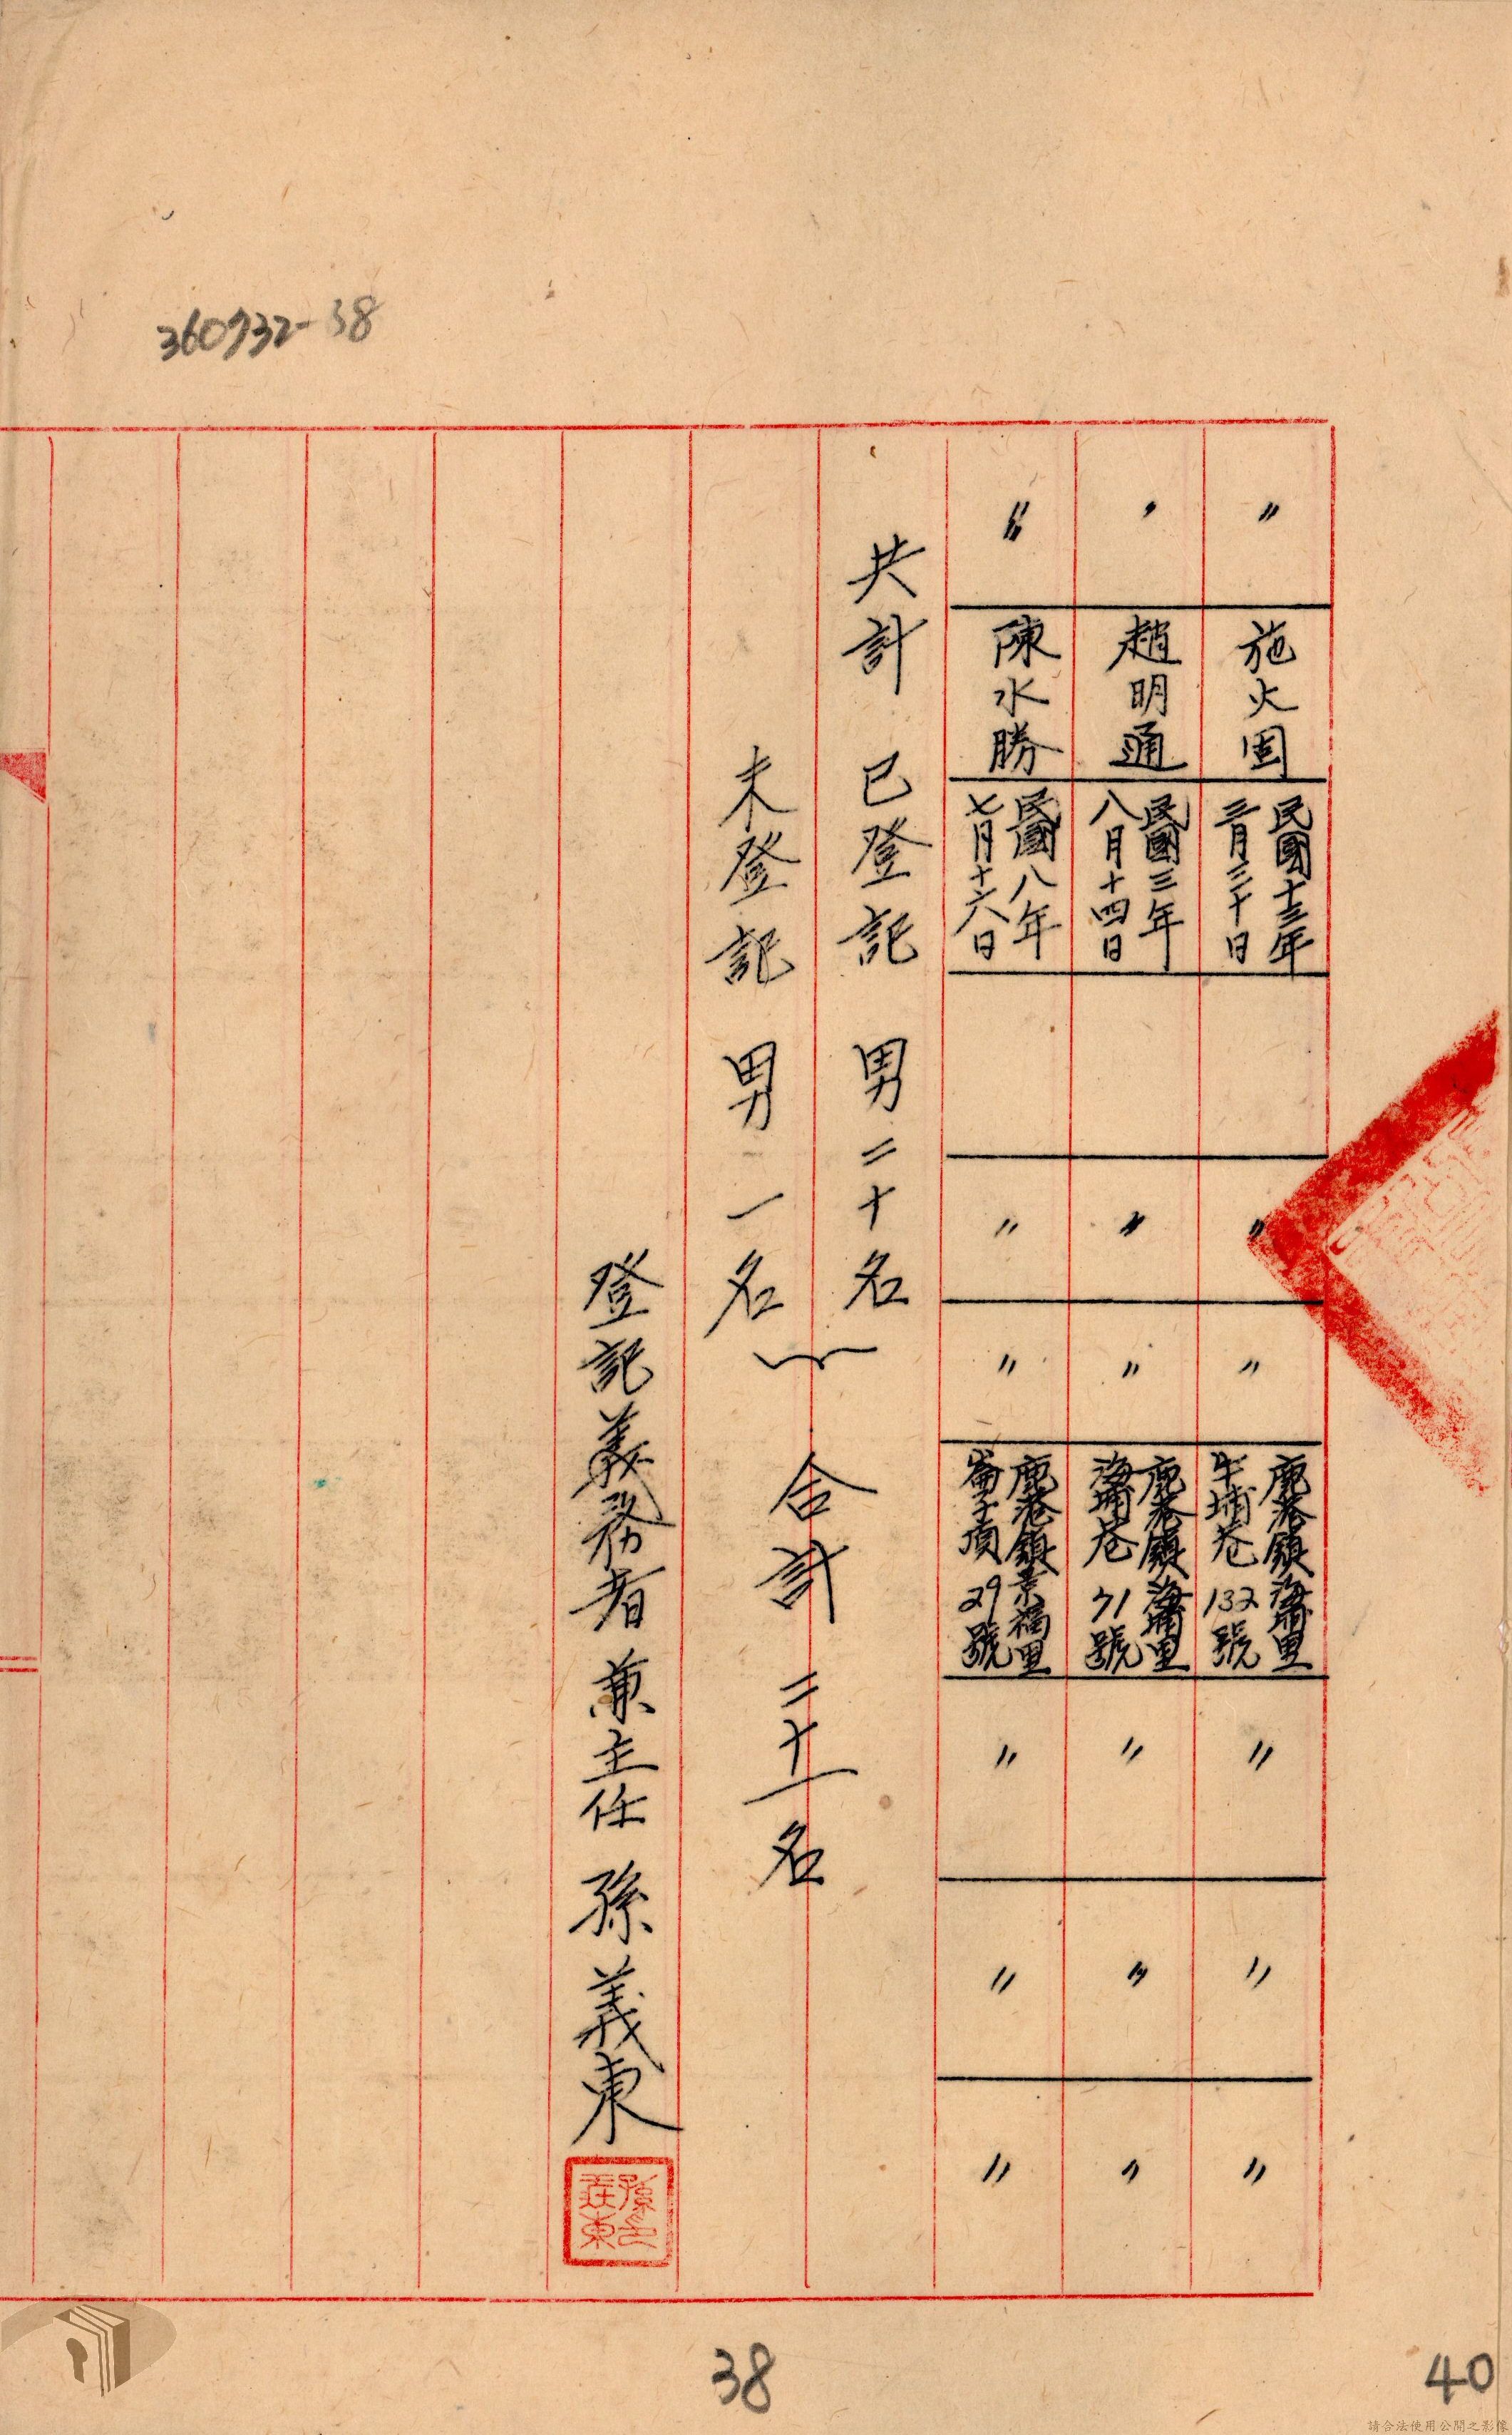 360732-38
〃
施火国
民國十三年
三月三十日
〃
〃
鹿港鎮海埔里
牛埔巷132號
〃
〃
〃
〃
趙明通
民國三年
八月十四日
〃
〃
鹿港鎮海埔里
海埔巷71號
〃
〃
〃
〃
陳水勝
民國八年
七月十六日
〃
〃
鹿港鎮景福里
崙子頂29號
〃
〃
〃
共計 已登記 男 二十名
未登記 男 一名
合計 二十一名
登記義務者 兼主任 孫義東
38
40
請合法使用公開之影像